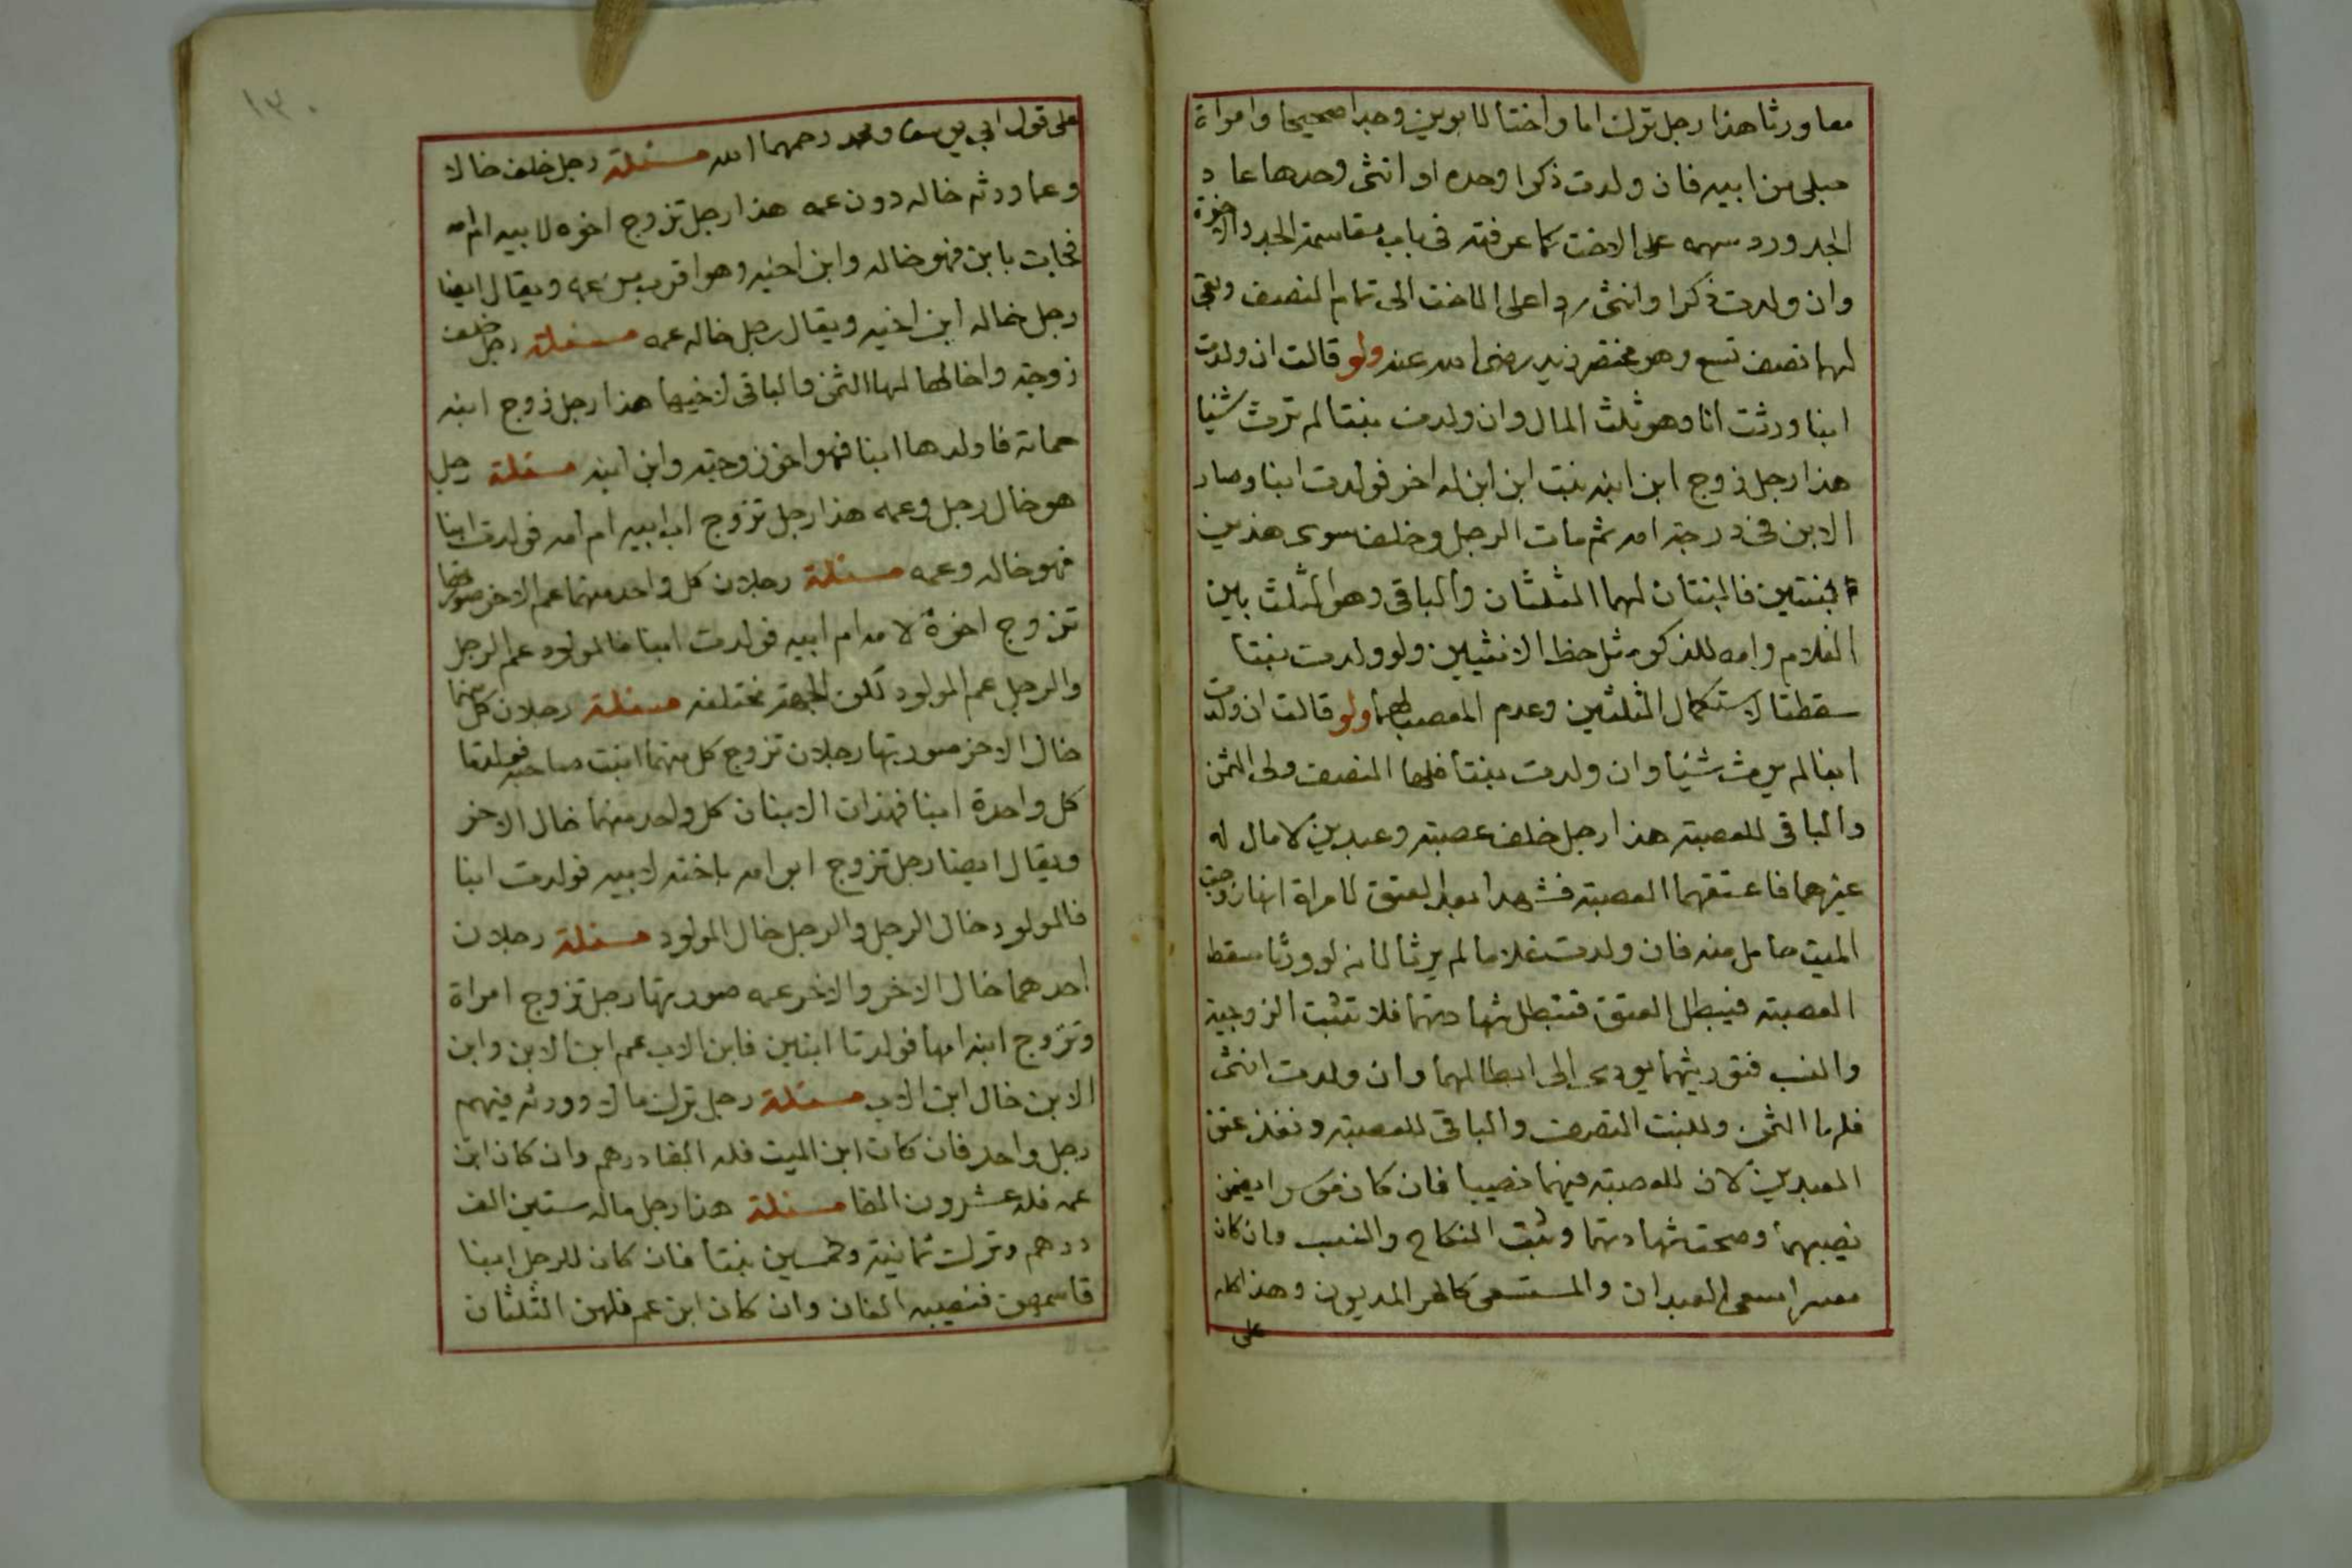 معا ورثا هذا رجل ترك اما واختا لابوين وجدا صحيحا وامراة
حبلى من ابيه فان ولدت ذكرا وحده او انثى وحدها عاد
الجد ورد سهمه على الاخت كما عرفته فى باب مقاسمة الجد والاخوة
وان ولدت ذكرا وانثى ردا على الاخت الى تمام النصف وبقى
لهما نصف تسع وهو مختصر زيد رضى الله عنه ولو قالت ان ولدت
ابنا ورثت انا وهو ثلث المال وان ولدت بنتا لم ترث شئيا
هذا رجل زوج ابن ابنه بنت ابن ابن له اخر فولدت ابنا وصار
الابن فى درجة امه ثم مات الرجل وخلف سوى هذين
بنتين فالبنتان لهما الثلثان والباقى وهو الثلث بين
الغلام وامه للذكر مثل حظ الانثيين ولو ولدت بنتا
سقطتا لاستكمال الثلثين وعدم المعصب لهما ولو قالت ان ولدت
ابنا لم يرث شئيا وان ولدت بنتا فلها النصف ولى الثمن
والباقى للعصبة هذا رجل خلف عصبة وعبدين لا مال له
غيرهما فاعتقهما العصبة فشهدا بعد العتق لامراة انها زوجة
الميت حامل منه فان ولدت غلاما لم يرثا لانه لو ورثا سقط
العصبة فيبطل العتق فتبطل شهادتهما فلا تثبت الزوجية
والنسب فتوريثهما يودى الى ابطالهما وان ولدت انثى
فلها الثمن وللبنت النصف والباقى للعصبة ونفذ عتق
العبدين لان للعصبة فيهما نصيبا فان كان موسرا يضمن
نصيبهما وصحت شهادتهما وثبت النكاح والنسب وان كان
معسرا سعى العبدان والمستسعى كالحر المديون وهذا كله
على
١٣٠
على قول ابي يوسف ومحمد رحمهما الله مسئلة رجل خلف خالا
وعما ورثه خاله دون عمه هذا رجل تزوج اخوه لابيه ام امه
فجاءت بابن فهو خاله وابن اخيه وهو اقرب من عمه ويقال ايضا
رجل خاله ابن اخيه ويقال رجل خاله عمه مسئلة رجل خلف
زوجة واخا لها لها الثمن والباقى لاخيها هذا رجل زوج ابنه
حماته فاولدها ابنا فهو اخو زوجته وابن ابنه مسئلة رجل
هو خال رجل وعمه هذا رجل تزوج اب ابيه ام امه فولدت ابنا
فهو خاله وعمه مسئلة رجلان كل واحد منهما عم الاخر صورتها
تزوج اخوة لامه ام ابيه فولدت ابنا فالمولود عم الرجل
والرجل عم المولود لكن الجهة مختلفة مسئلة رجلان كل منهما
خال الاخر صورتها رجلان تزوج كل منهما ابنت صاحبه فولدتا
كل واحدة ابنا فهذان الابنان كل واحد منهما خال الاخر
ويقال ايضا رجل تزوج ابو امه باخته لابيه فولدت ابنا
فالمولود خال الرجل والرجل خال المولود مسئلة رجلان
احدهما خال الاخر والاخر عمه صورتها رجل تزوج امراة
وتزوج ابنه امها فولدتا ابنين فابن الاب عم ابن الابن وابن
الابن خال ابن الاب مسئلة رجل ترك مالا وورثه فيهم
رجل واحد فان كان ابن الميت فله الفا درهم وان كان ابن
عمه فله عشرون الفا مسئلة هذا رجل ماله ستين الف
درهم وترك ثمانية وخمسين بنتا فان كان للرجل ابنا
قاسمهن فنصيبه الفان وان كان ابن عم فلهن الثلثان